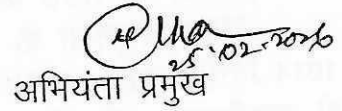 25.02.2020
अभियंता प्रमुख